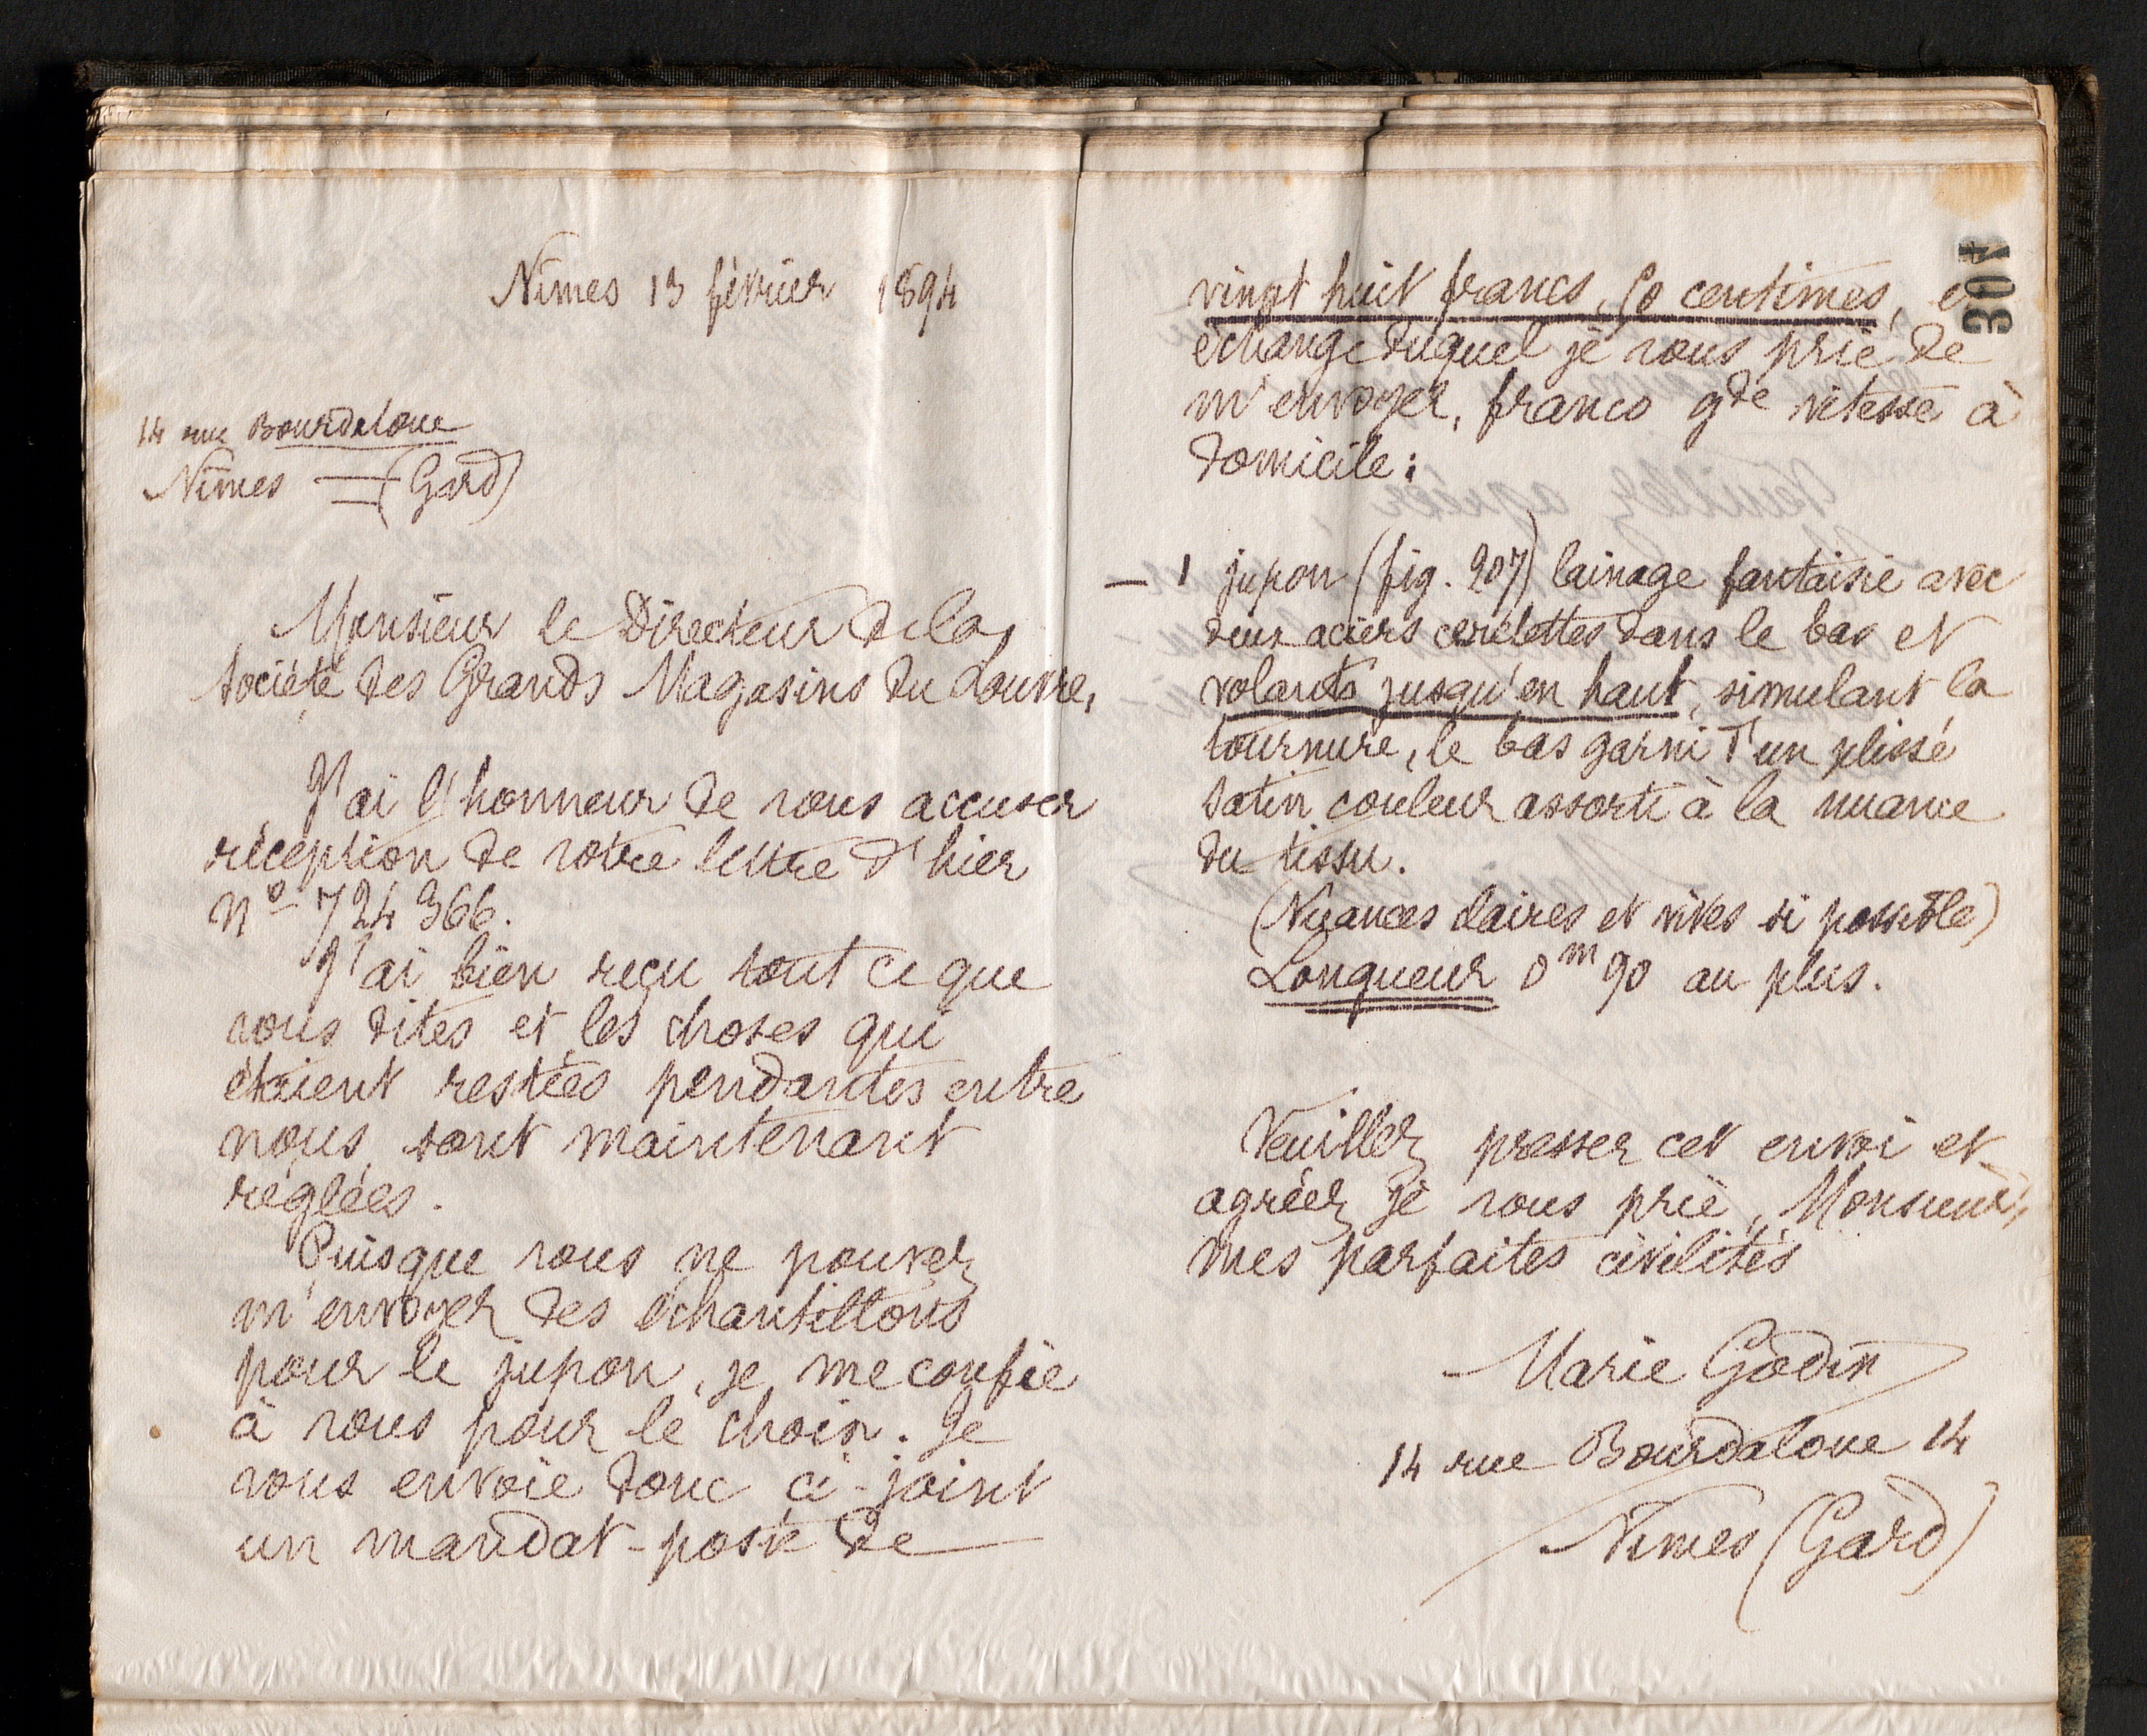 Nîmes 13 février 1894
14 rue Bourdaloue
Nîmes = (Gard)
Monsieur le Directeur de la
Société des Grands Magasins du Louvre,
J'ai l'honneur de vous accuser
réception de votre lettre d'hier
Nº 724 366.
J'ai bien reçu tout ce que
vous dites et les choses qui
étaient restées pendantes entre
nous, sont maintenant
réglées.
Puisque vous ne pouvez
m'envoyer des échantillons
pour le jupon, je me confie
à vous pour le choix. Je
vous envoie donc ci-joint
un mandat-poste de
301
vingt huit francs, 50 centimes,
échange duquel je vous prie de
m'envoyer, franco gde vitesse à
domicile :
— 1 jupon (fig. 207) lainage fantaisie avec
deux aciers dans le bas et
volants jusqu'en haut, simulant la
tournure, le bas garni d'un plissé
satin couleur assorti à la nuance
du tissu.
(Nuances claires et vives si possible)
Longueur 0m90 au plus.
Veuillez presser cet envoi et
agréez je vous prie, Monsieur,
mes parfaites civilités
Marie Godin
14 rue Bourdaloue 14
Nîmes (Gard)